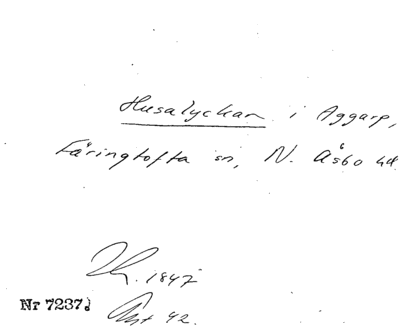 Husalyckan i Aggarp,
Färingtofta sn, N. Åsbo hd.
1847
Nr 7237.
42.